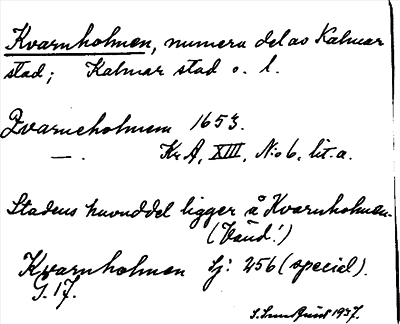 Kvarnholmen, numera del av Kalmar
stad; Kalmar stad o. l.
Qvarneholmem 1653.
—. Kr. A, XIII, No 6, lit. a.
Stadens huvuddel ligger å Kvarnholmen.
Kvarnholmen Lj: 256 (special).
G. 17.
1937.